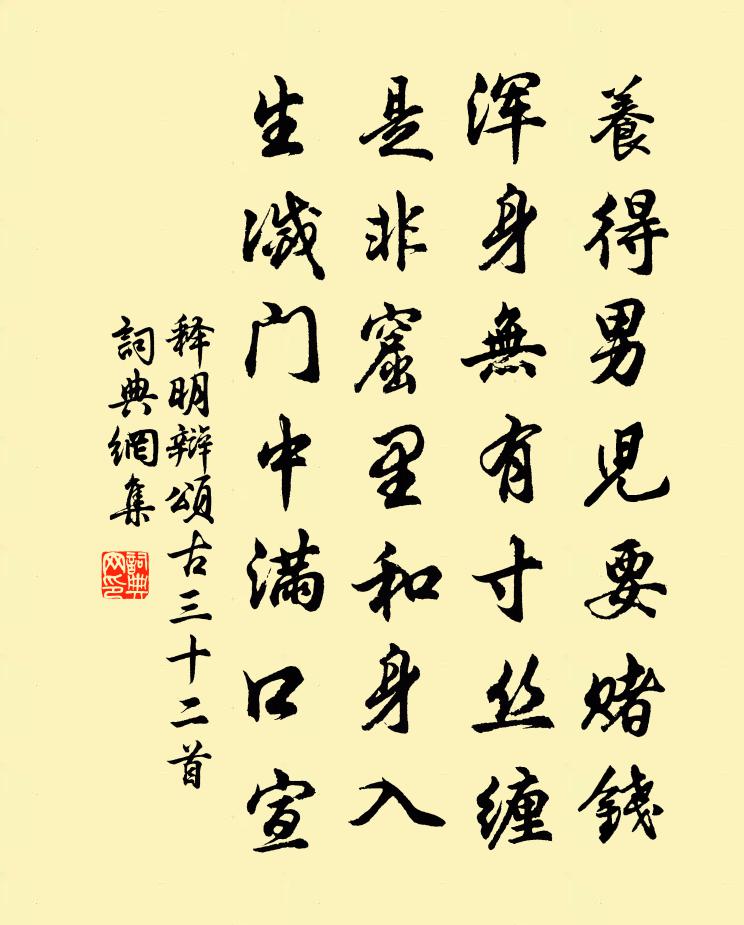 養得男児要賭錢
渾身無有寸丝纏
是非窟里和身入
生滅门中满口宣
释明辩頌古三十二首
詞典網集
詞典网印